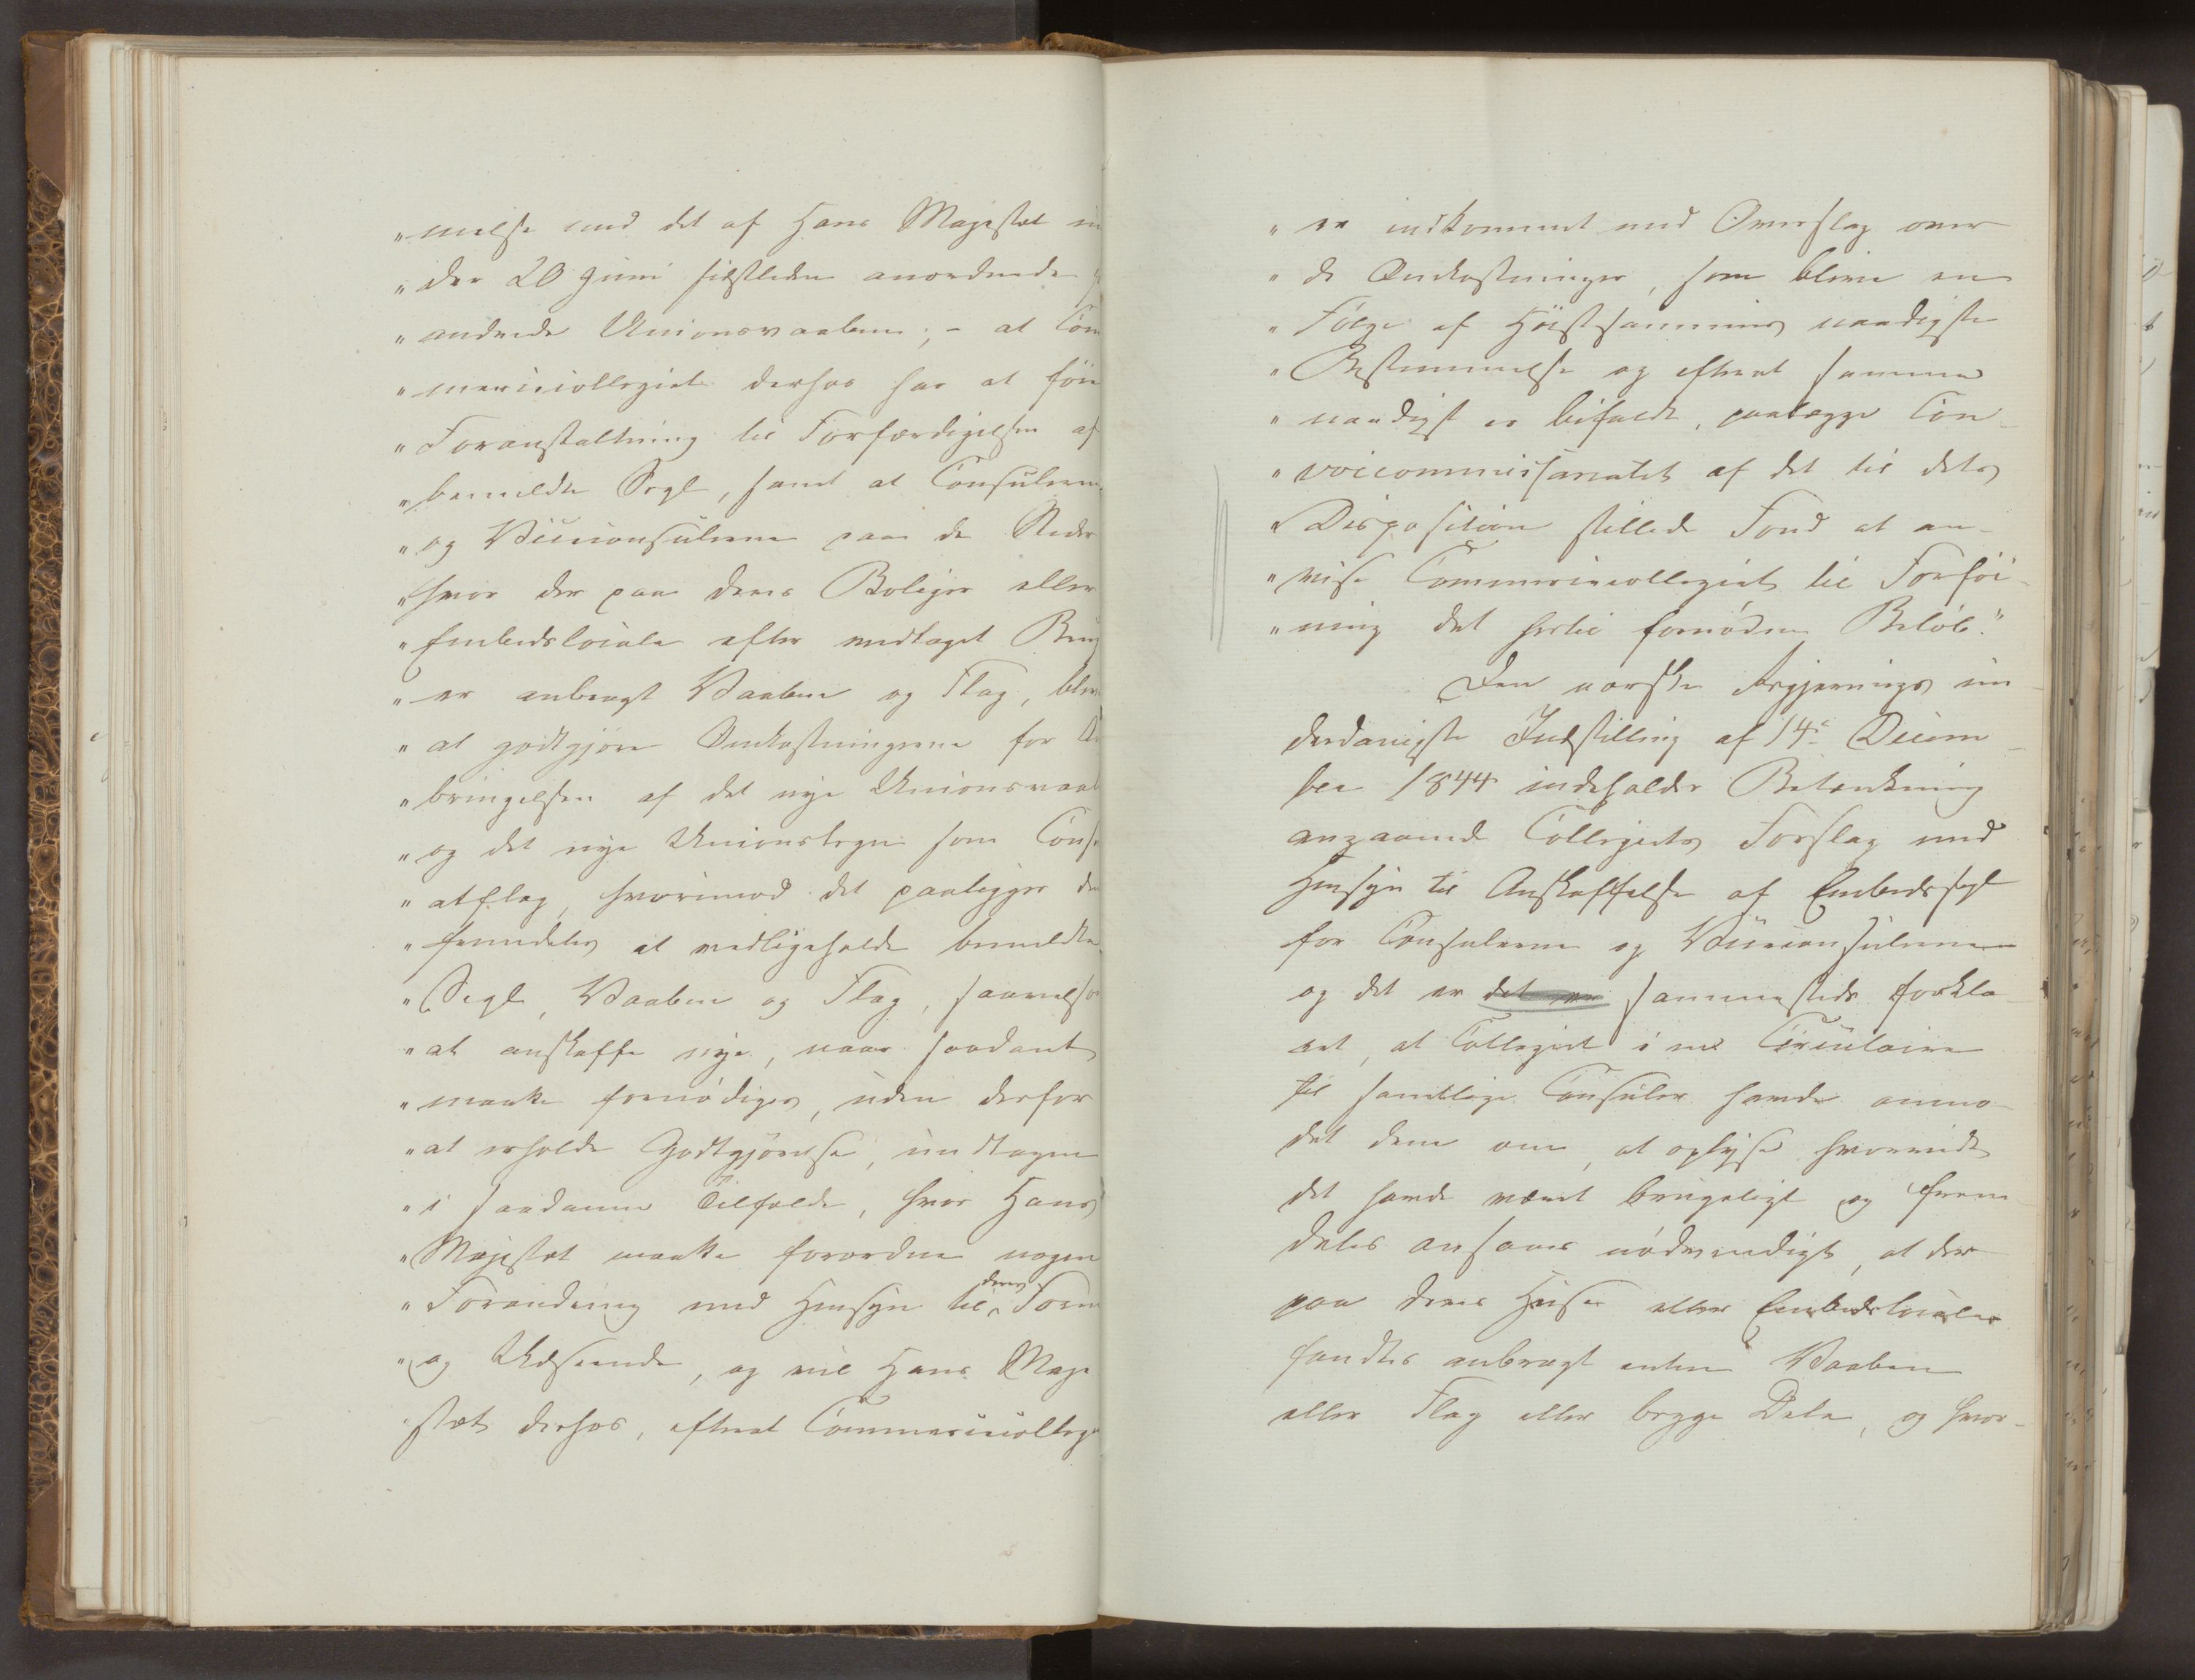 "melse med det af Hans Majestæt un
"der 20 Juni sidstleden anordnede
"andrede Unionsvaaben; - at Com
"mercecollegiet derhos har at föie
"Foranstaltning til Forfærdigelsen af
"bemeldte Segl, samt at Consulerne
"og Viceconsulerne paa de Steder
"hvor der paa deres Boliger eller
"Embedslocale efter vedtaget Brug
"er anbragt Vaaben og Flag, blive
"at godtgjöre Omkostningerne for An
"bringelsen af det nye Unionsvaab
"og det nye Unionstegn som Consu
"atflag, hvorimod det paaligger dem
"fremdeles at vedligeholde bemeldte
"Segl, Vaaben og Flag, saavelsom
"at anskaffe nye, naar saadant
"maatte fornödiges, uden derfor
"at erholde Godtgjörelse, undtagen
"i saadanne Tilfælde, hvor Hans
"Majestæt maatte forordne nogen
"Forandring med Hensyn til deres Form
"og Udseende, og vil Hans Maje
"stæt derhos, efterat Commercecollegi
"er indkommet med Overslag over
"de Omkostninger, som blive en
"Fölge af Höistsammes naadigste
"Bestemmelse og efterat samme
"naadigst er bifaldt, paalægge Con-
"voicommissariatet af det til dets
"Disposition stillede Fond at an-
"vise Commercecollegiet til Forföi-
"ning det hertil fornödne Belöb."
Den norske Regjerings un-
derdanigste Indstilling af 14de Decem-
ber 1844 indeholder Betænkning
angaaende Collegiets Forslag med
Hensyn til Anskaffelse af Embedssegl
for Consulerne og Viceconsulerne
og det er det er sammesteds forkla-
ret, at Collegiet i et Circulaire
til samtlige Consuler havde anmo-
det dem om, at oplyse hvorvidt
det havde været brugeligt og frem-
deles ansaaes nödvendigt, at der
paa deres Huse eller Embedslocaler
fandtes anbragt enten Vaaben
eller Flag eller begge Dele, og hvor-